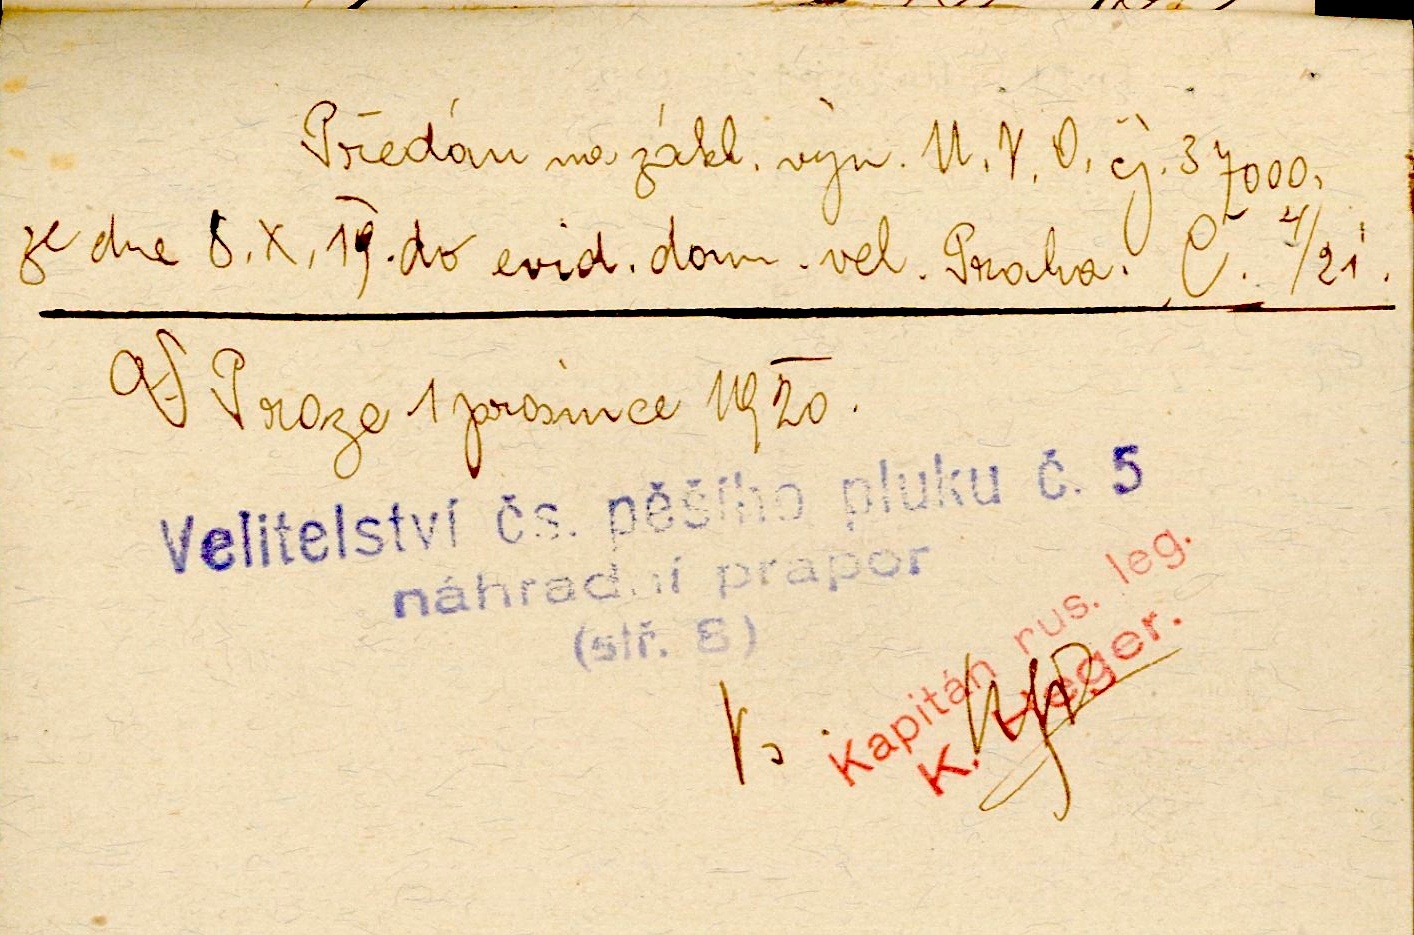 Předán na zákl. výn. M.V.O. čj. 37000.
ze dne 8.X.19. do evid. dom. vel. Praha. Č. 4/21.
V Praze 1 prosince 1920.
Velitelství čs. pěšího pluku č. 5
náhradní prapor
(stř. 8)
Kapitán rus. leg.
K. Heger.